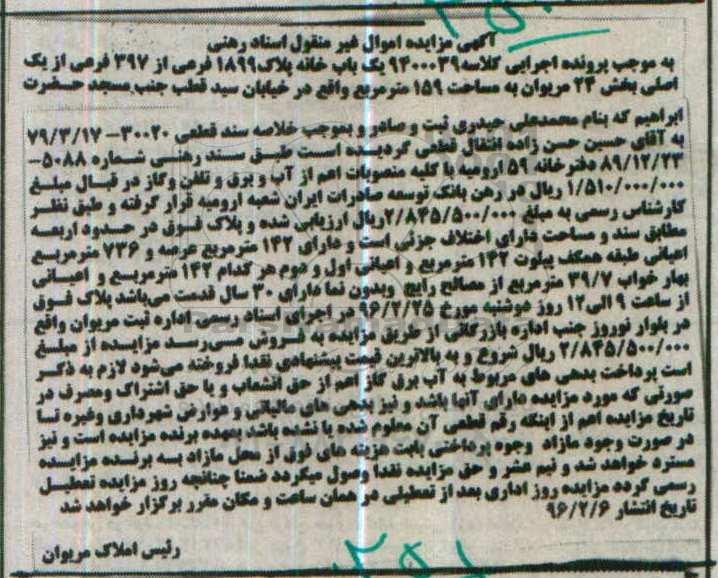 آگهی مزایده اموال غیر منقول اسناد رهنی
به موجب پرونده اجرایی کلاسه ۹۴۰۰۰۳۹ یک باب خانه پلاک ۱۸۹۹ فرعی از ۳۹۷ فرعی از یک
اصلی بخش ۲۴ مریوان به مساحت ۱۵۹ مترمربع واقع در خیابان سید قطب جنب مسجد حضرت
ابراهیم که بنام محمدعلی حیدری ثبت و صادر و بموجب خلاصه سند قطعی ۳۰۰۲۰– ۷۹/۳/۱۷
به آقای حسین حسن زاده انتقال قطعی گردیده است طبق سند رهنی شماره ۵۰۸۸–
۸۹/۱۲/۲۳ دفترخانه ۵۹ ارومیه با کلیه منصوبات اعم از آب و برق و تلفن وگاز در قبال مبلغ
۱/۵۱۰/۰۰۰/۰۰۰ ریال در رهن بانک توسعه صادرات ایران شعبه ارومیه قرار گرفته و طبق نظر
کارشناس رسمی به مبلغ ۲/۸۴۵/۵۰۰/۰۰۰ریال ارزیابی شده و پلاک فوق در حدود اربعه
مطابق سند و مساحت دارای اختلاف جزئی است و دارای ۱۴۲ مترمربع عرصه و ۷۳۶ مترمربع
اعیانی طبقه همکف پیلوت ۱۴۲ مترمربع و اعیانی اول و دوم هر کدام ۱۴۲ مترمربع و اعیانی
بهار خواب ۳۹/۷ مترمربع از مصالح رایج وبدون نما دارای ۳۰ سال قدمت می‌باشد پلاک فوق
از ساعت ۹ الی۱۲ روز دوشنبه مورخ ۹۶/۲/۲۵ در اجرای اسناد رسمی اداره ثبت مریوان واقع
در بلوار نوروز جنب اداره بازرگانی از طریق مزایده به فروش می‌رسد مزایده از مبلغ
۲/۸۴۵/۵۰۰/۰۰۰ ریال شروع و به بالاترین قیمت پیشنهادی نقدا فروخته می‌شود لازم به ذکر
است پرداخت بدهی های مربوط به آب برق گاز اعم از حق انشعاب و یا حق اشتراک ومصرف در
صورتی که مورد مزایده دارای آنها باشد و نیز بدهی های مالیاتی و عوارض شهرداری وغیره تا
تاریخ مزایده اعم از اینکه رقم قطعی آن معلوم شده یا نشده باشد بعهده برنده مزایده است و نیز
در صورت وجود مازاد وجوه پرداختی بابت هزینه های فوق از محل مازاد به برنده مزایده
مسترد خواهد شد و نیم عشر و حق مزایده نقدا وصول میگردد ضمنا چنانچه روز مزایده تعطیل
رسمی گردد مزایده روز اداری بعد از تعطیلی در همان ساعت و مکان مقرر برگزار خواهد شد
تاریخ انتشار ۹۶/۲/۶
رئیس املاک مریوان